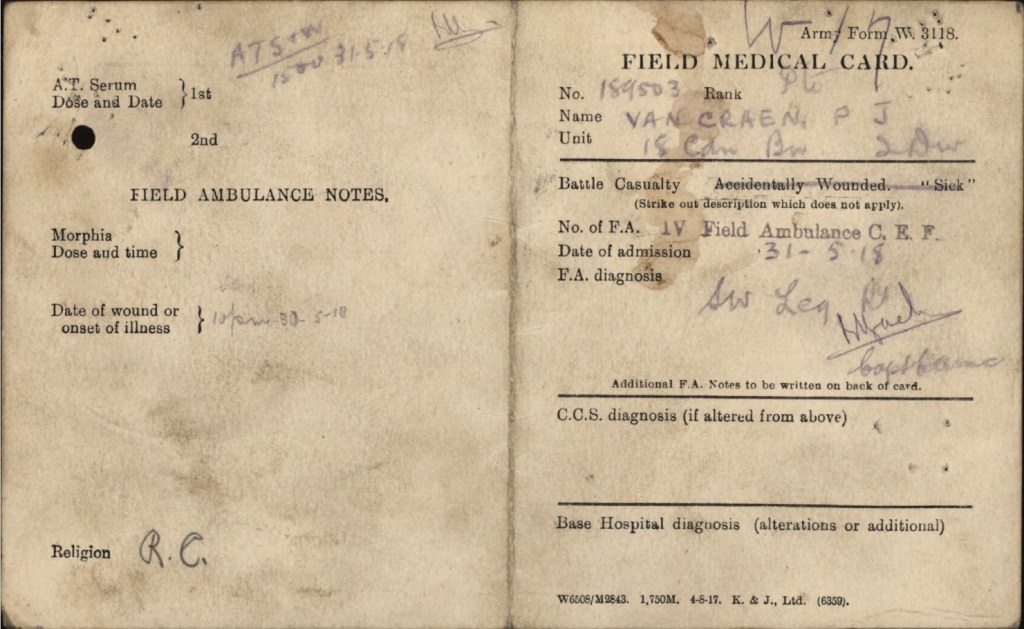 1500 31-5-18
A.T. Serum
Dose and Date } 1st
2nd
FIELD AMBULANCE NOTES.
Morphia
Dose and time }
Date of wound or
onset of illness } 10pm 30-5-18
Religion R.C.
Army Form W. 3118.
FIELD MEDICAL CARD.
No. 189503 Rank Pte
Name VAN CRAEN. P J
Unit 18 Cdn Bn 2 Div
Battle Casualty Accidentally Wounded. "Sick"
(Strike out description which does not apply).
No. of F.A. IV Field Ambulance C. E. F.
Date of admission 31-5-18
F.A. diagnosis
SW Leg R
Additional F.A. Notes to be written on back of card.
C.C.S. diagnosis (if altered from above)
Base Hospital diagnosis (alterations or additional)
W6508/M2843. 1,750M. 4-8-17. K. & J., Ltd. (6359).